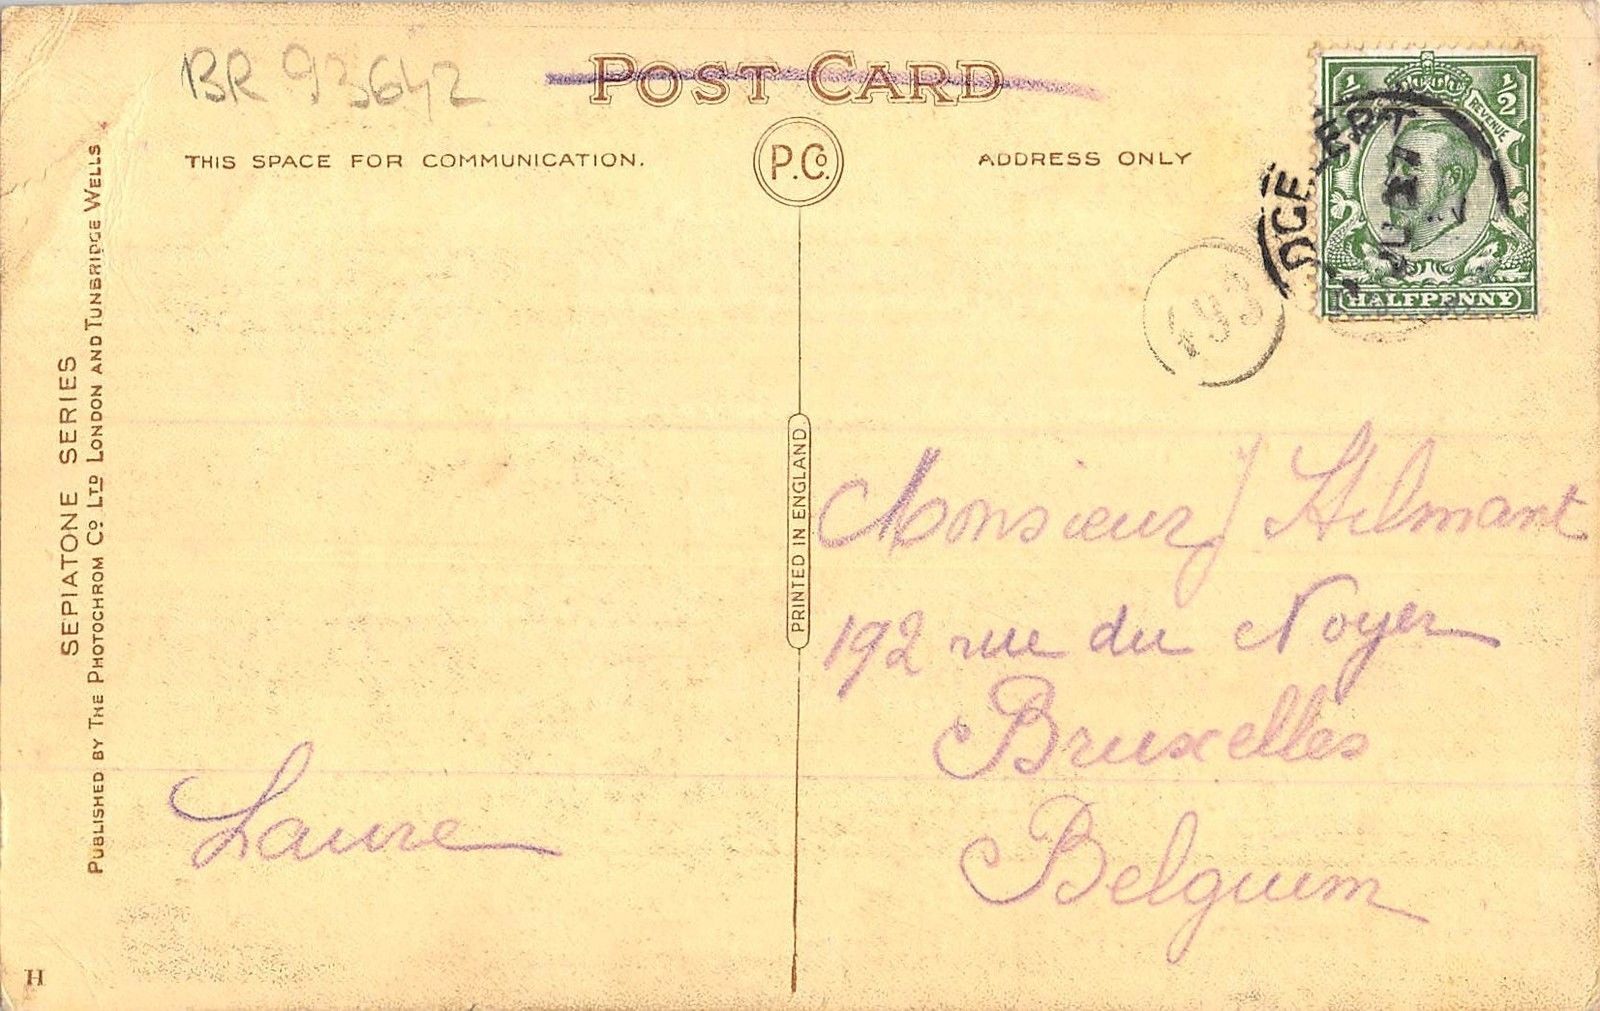 BR 93642
POST CARD
THIS SPACE FOR COMMUNICATION.
P.Co.
ADDRESS ONLY
1/2 1/2
REVENUE
HALFPENNY
JU 27
493
SEPIATONE SERIES
PUBLISHED BY THE PHOTOCHROM CO LTD LONDON AND TUNBRIDGE WELLS
PRINTED IN ENGLAND
Monsieur J Hilmant
192 rue du Noyer
Bruxelles
Belguim
Laure
H